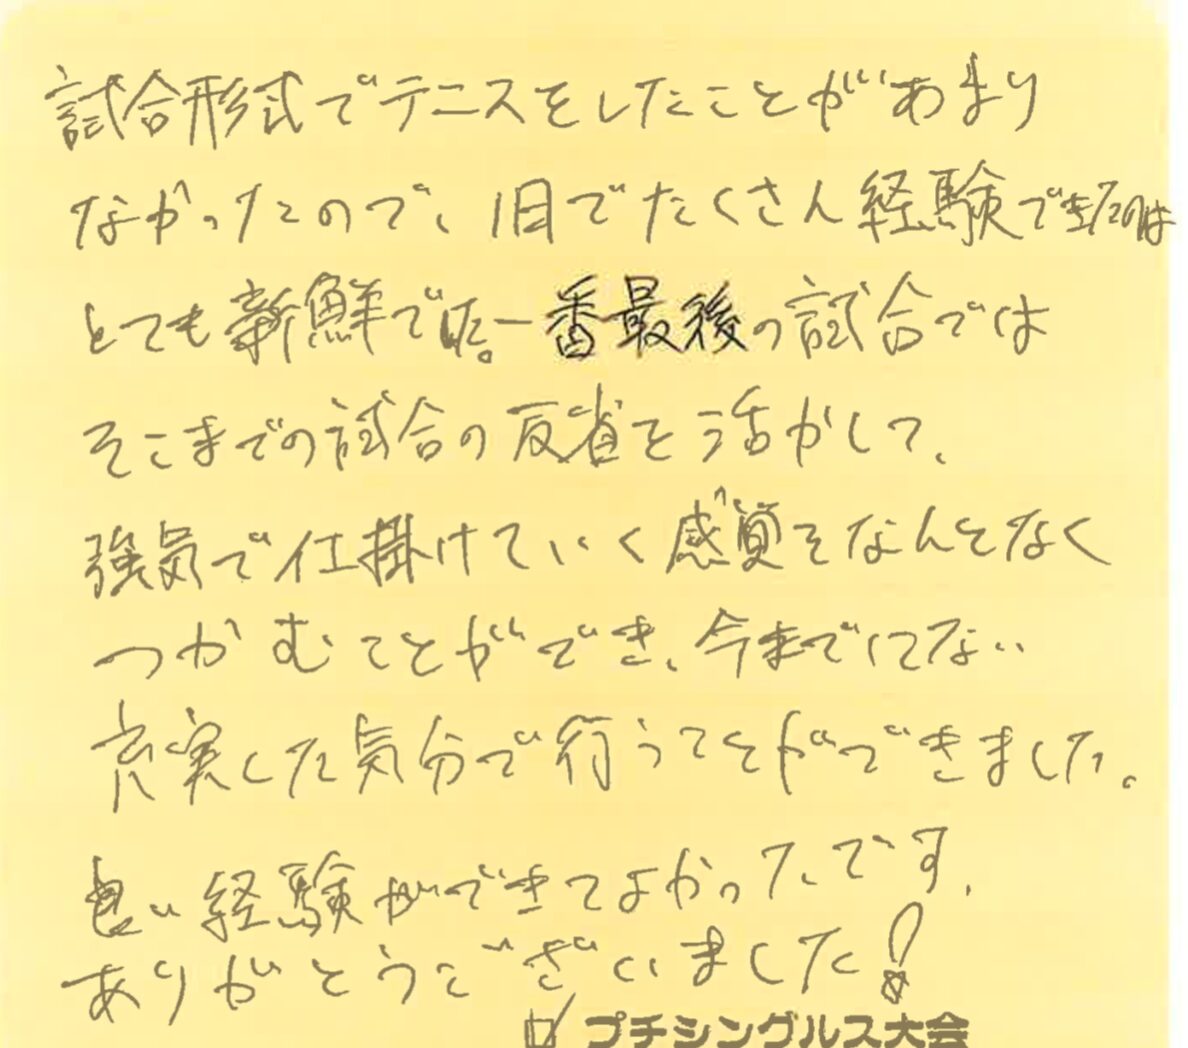 試合形式でテニスをしたことがあまり
なかったので、1日でたくさん経験できたのは
とても新鮮でした。一番最後の試合では
そこまでの試合の反省を活かして、
強気で仕掛けていく感覚をなんとなく
つかむことができ、今までにない
充実した気分で行うことができました。
良い経験ができてよかったです。
ありがとうございました!
☑ プチシングルス大会